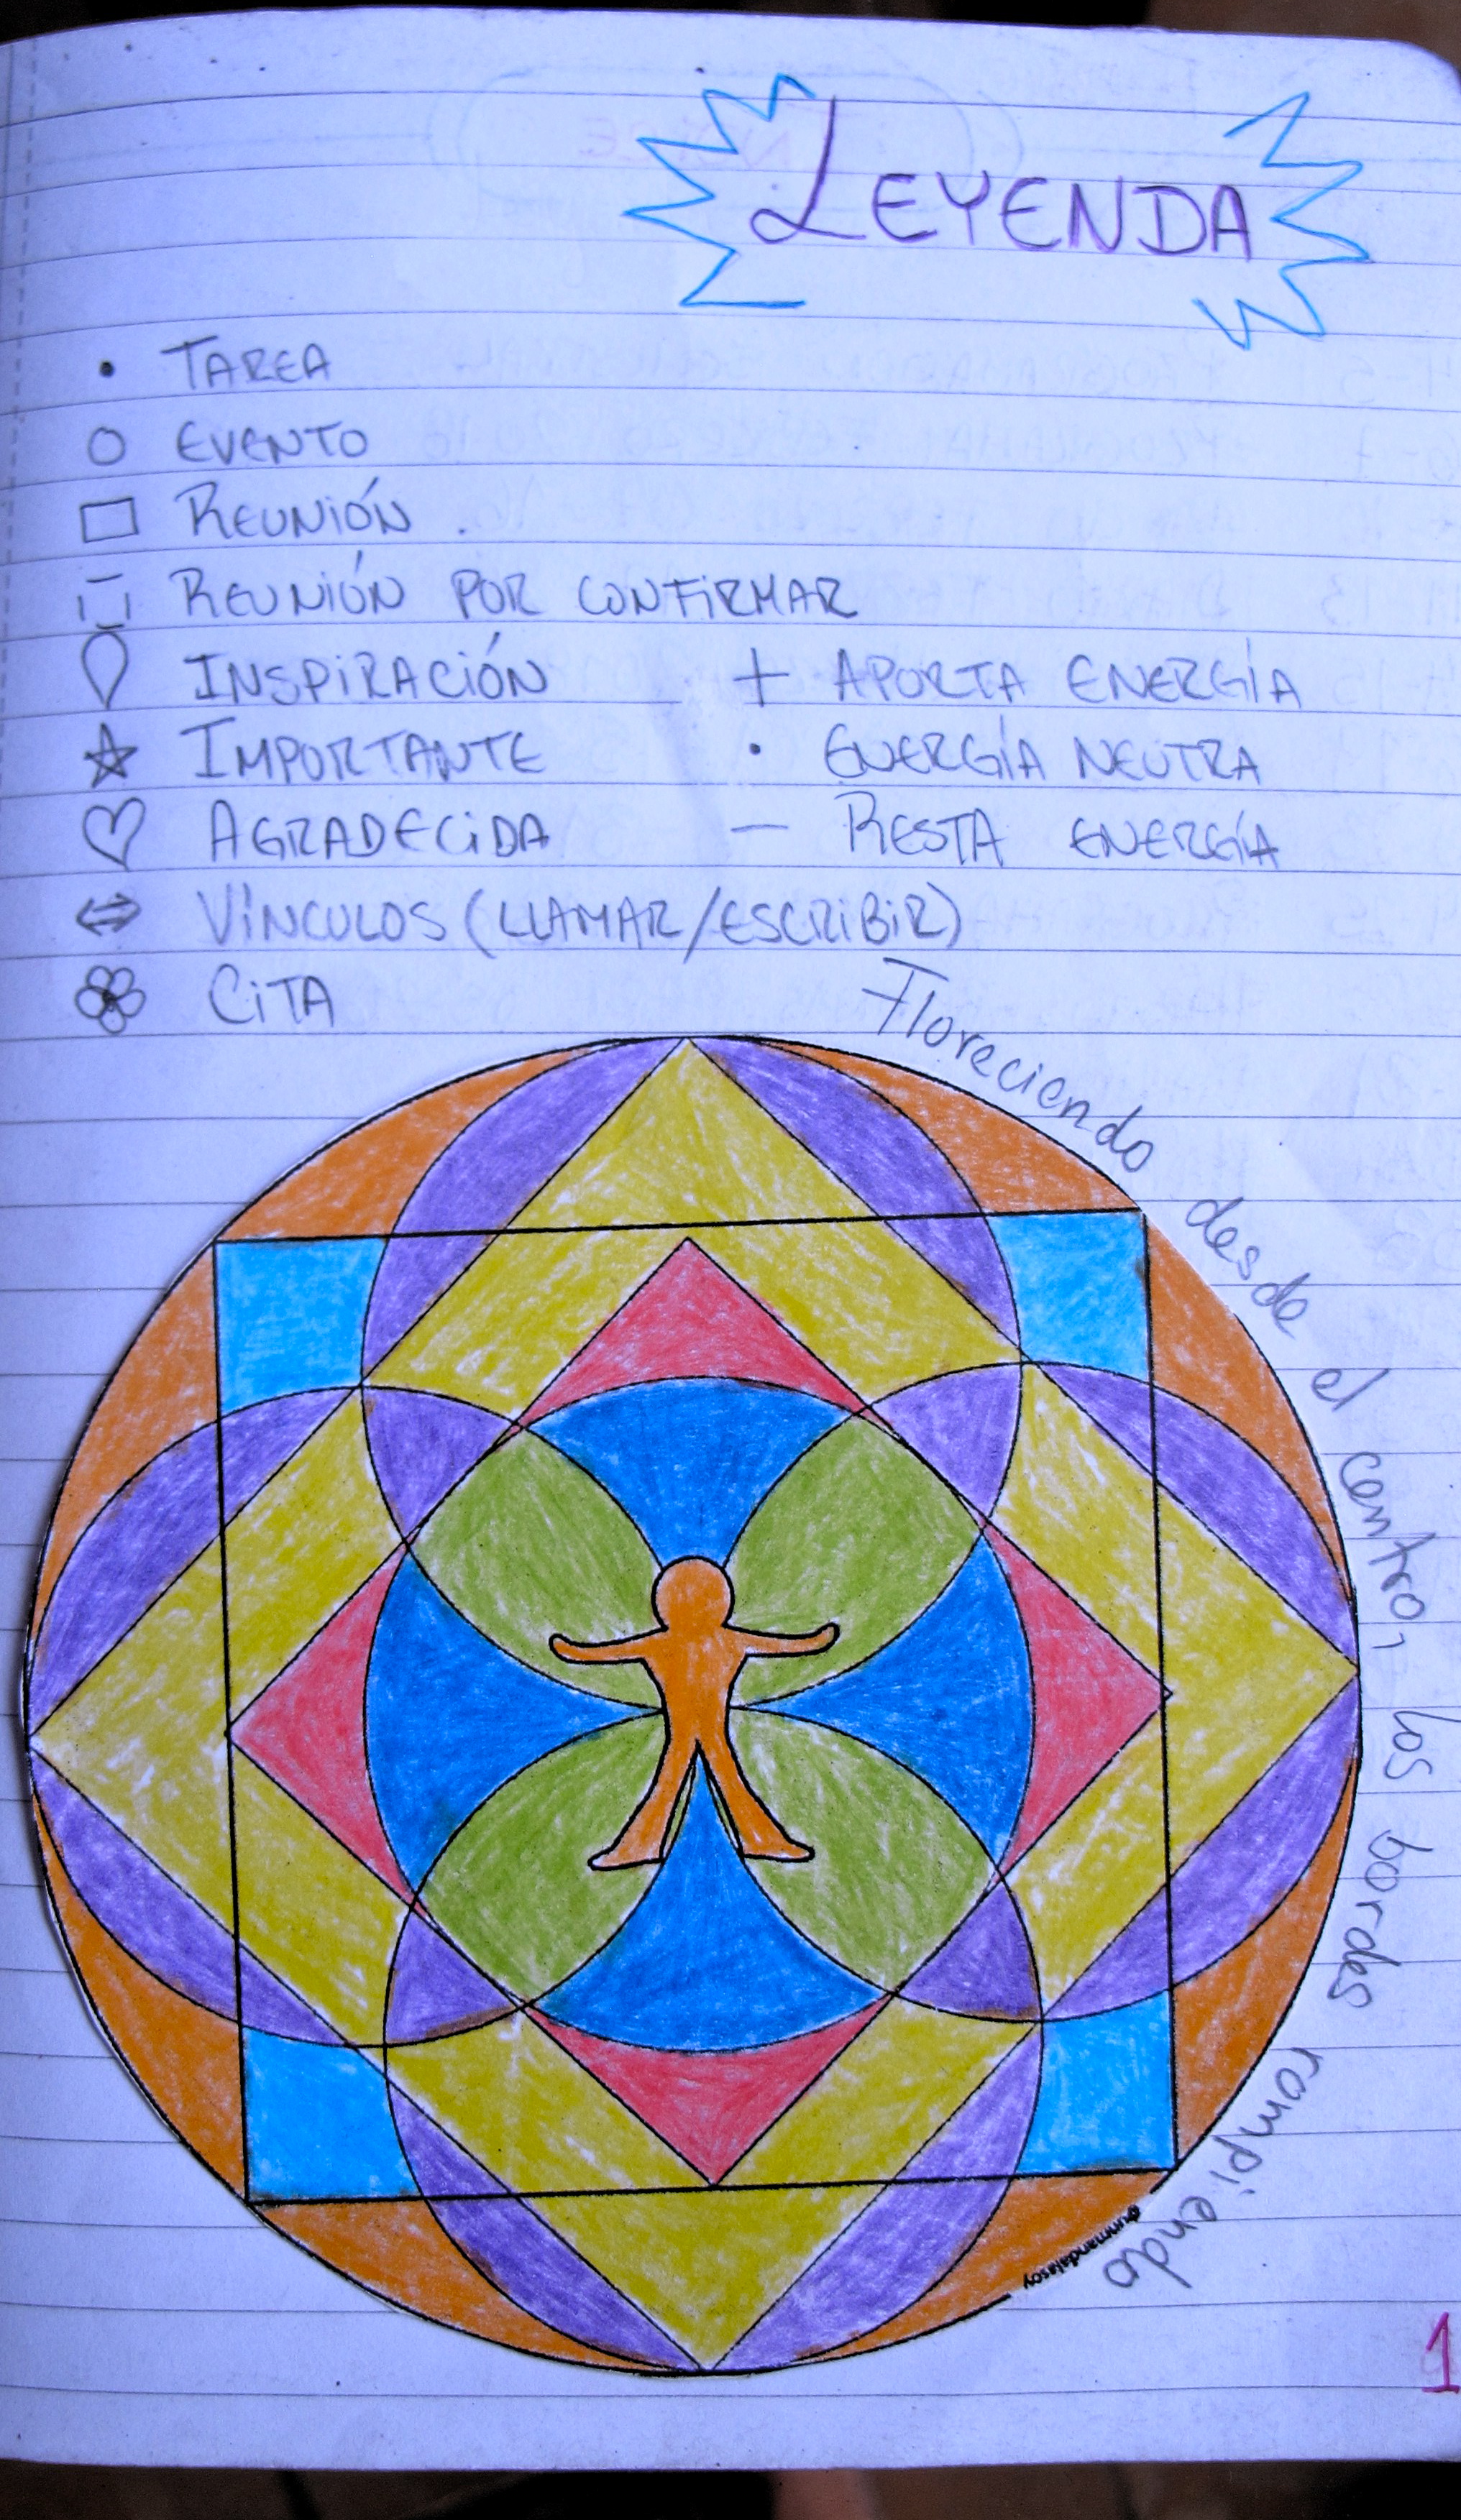 LEYENDA
• TAREA
○ EVENTO
▭ REUNIÓN
REUNIÓN POR CONFIRMAR
INSPIRACIÓN + APORTA ENERGÍA
☆ IMPORTANTE • ENERGÍA NEUTRA
♡ AGRADECIDA — RESTA ENERGÍA
⇔ VÍNCULOS (LLAMAR/ESCRIBIR)
CITA
Floreciendo desde el centro, los bordes rompiendo
@unmandalasoy
1